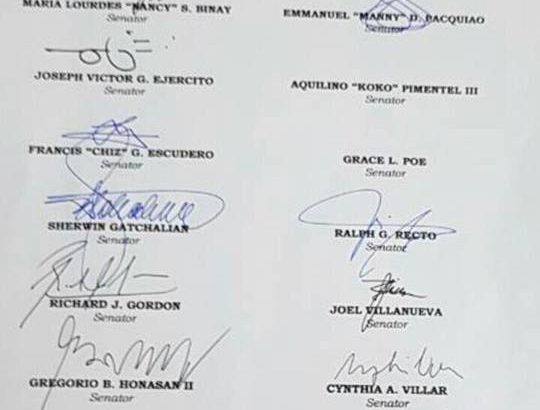 MARIA LOURDES "NANCY" S. BINAY
Senator
JOSEPH VICTOR G. EJERCITO
Senator
FRANCIS "CHIZ" G. ESCUDERO
Senator
SHERWIN GATCHALIAN
Senator
RICHARD J. GORDON
Senator
GREGORIO B. HONASAN II
Senator
EMMANUEL "MANNY" D. PACQUIAO
Senator
AQUILINO "KOKO" PIMENTEL III
Senator
GRACE L. POE
Senator
RALPH G. RECTO
Senator
JOEL VILLANUEVA
Senator
CYNTHIA A. VILLAR
Senator